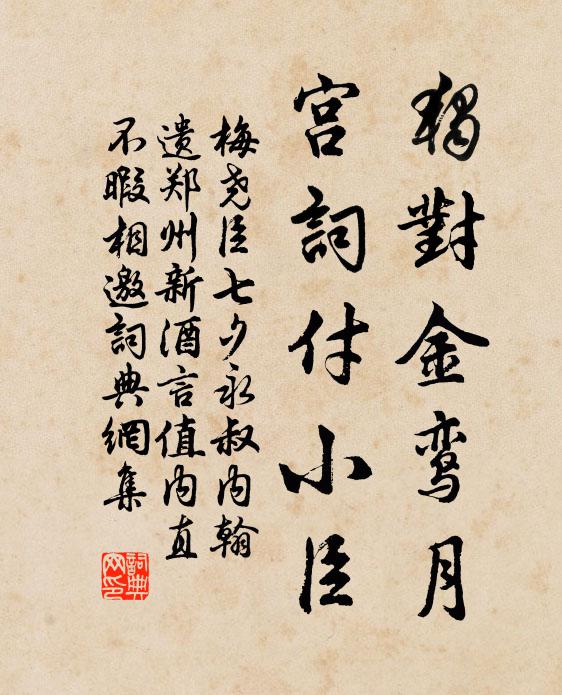 獨對金鸞月
宮詞付小臣
梅尧臣七夕永叔内翰
遗郑州新酒言值内直
不暇相邀詞典網集
詞典网印